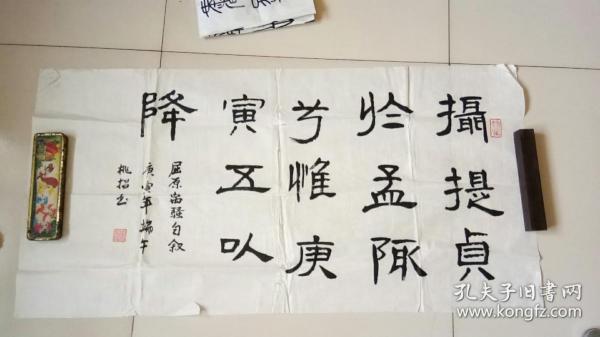 攝提貞
於孟陬
兮惟庚
寅五㕥
降
屈原离骚自叙
庚寅年端午
孔夫子旧书网
www.kongfz.com